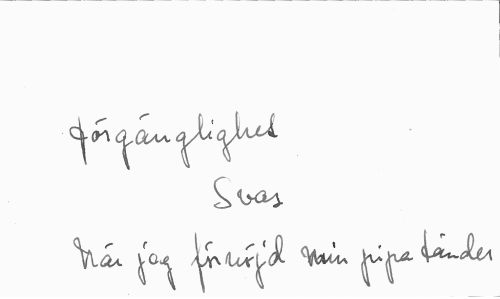 Förgänglighet
Svas
När jag förnöjd min pipa tänder